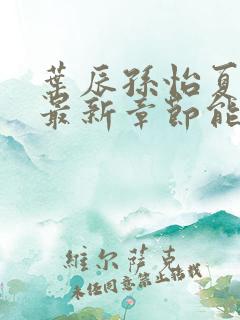 葉辰孫怡夏
最新章節能
維尔萨克
未经同意禁止转载